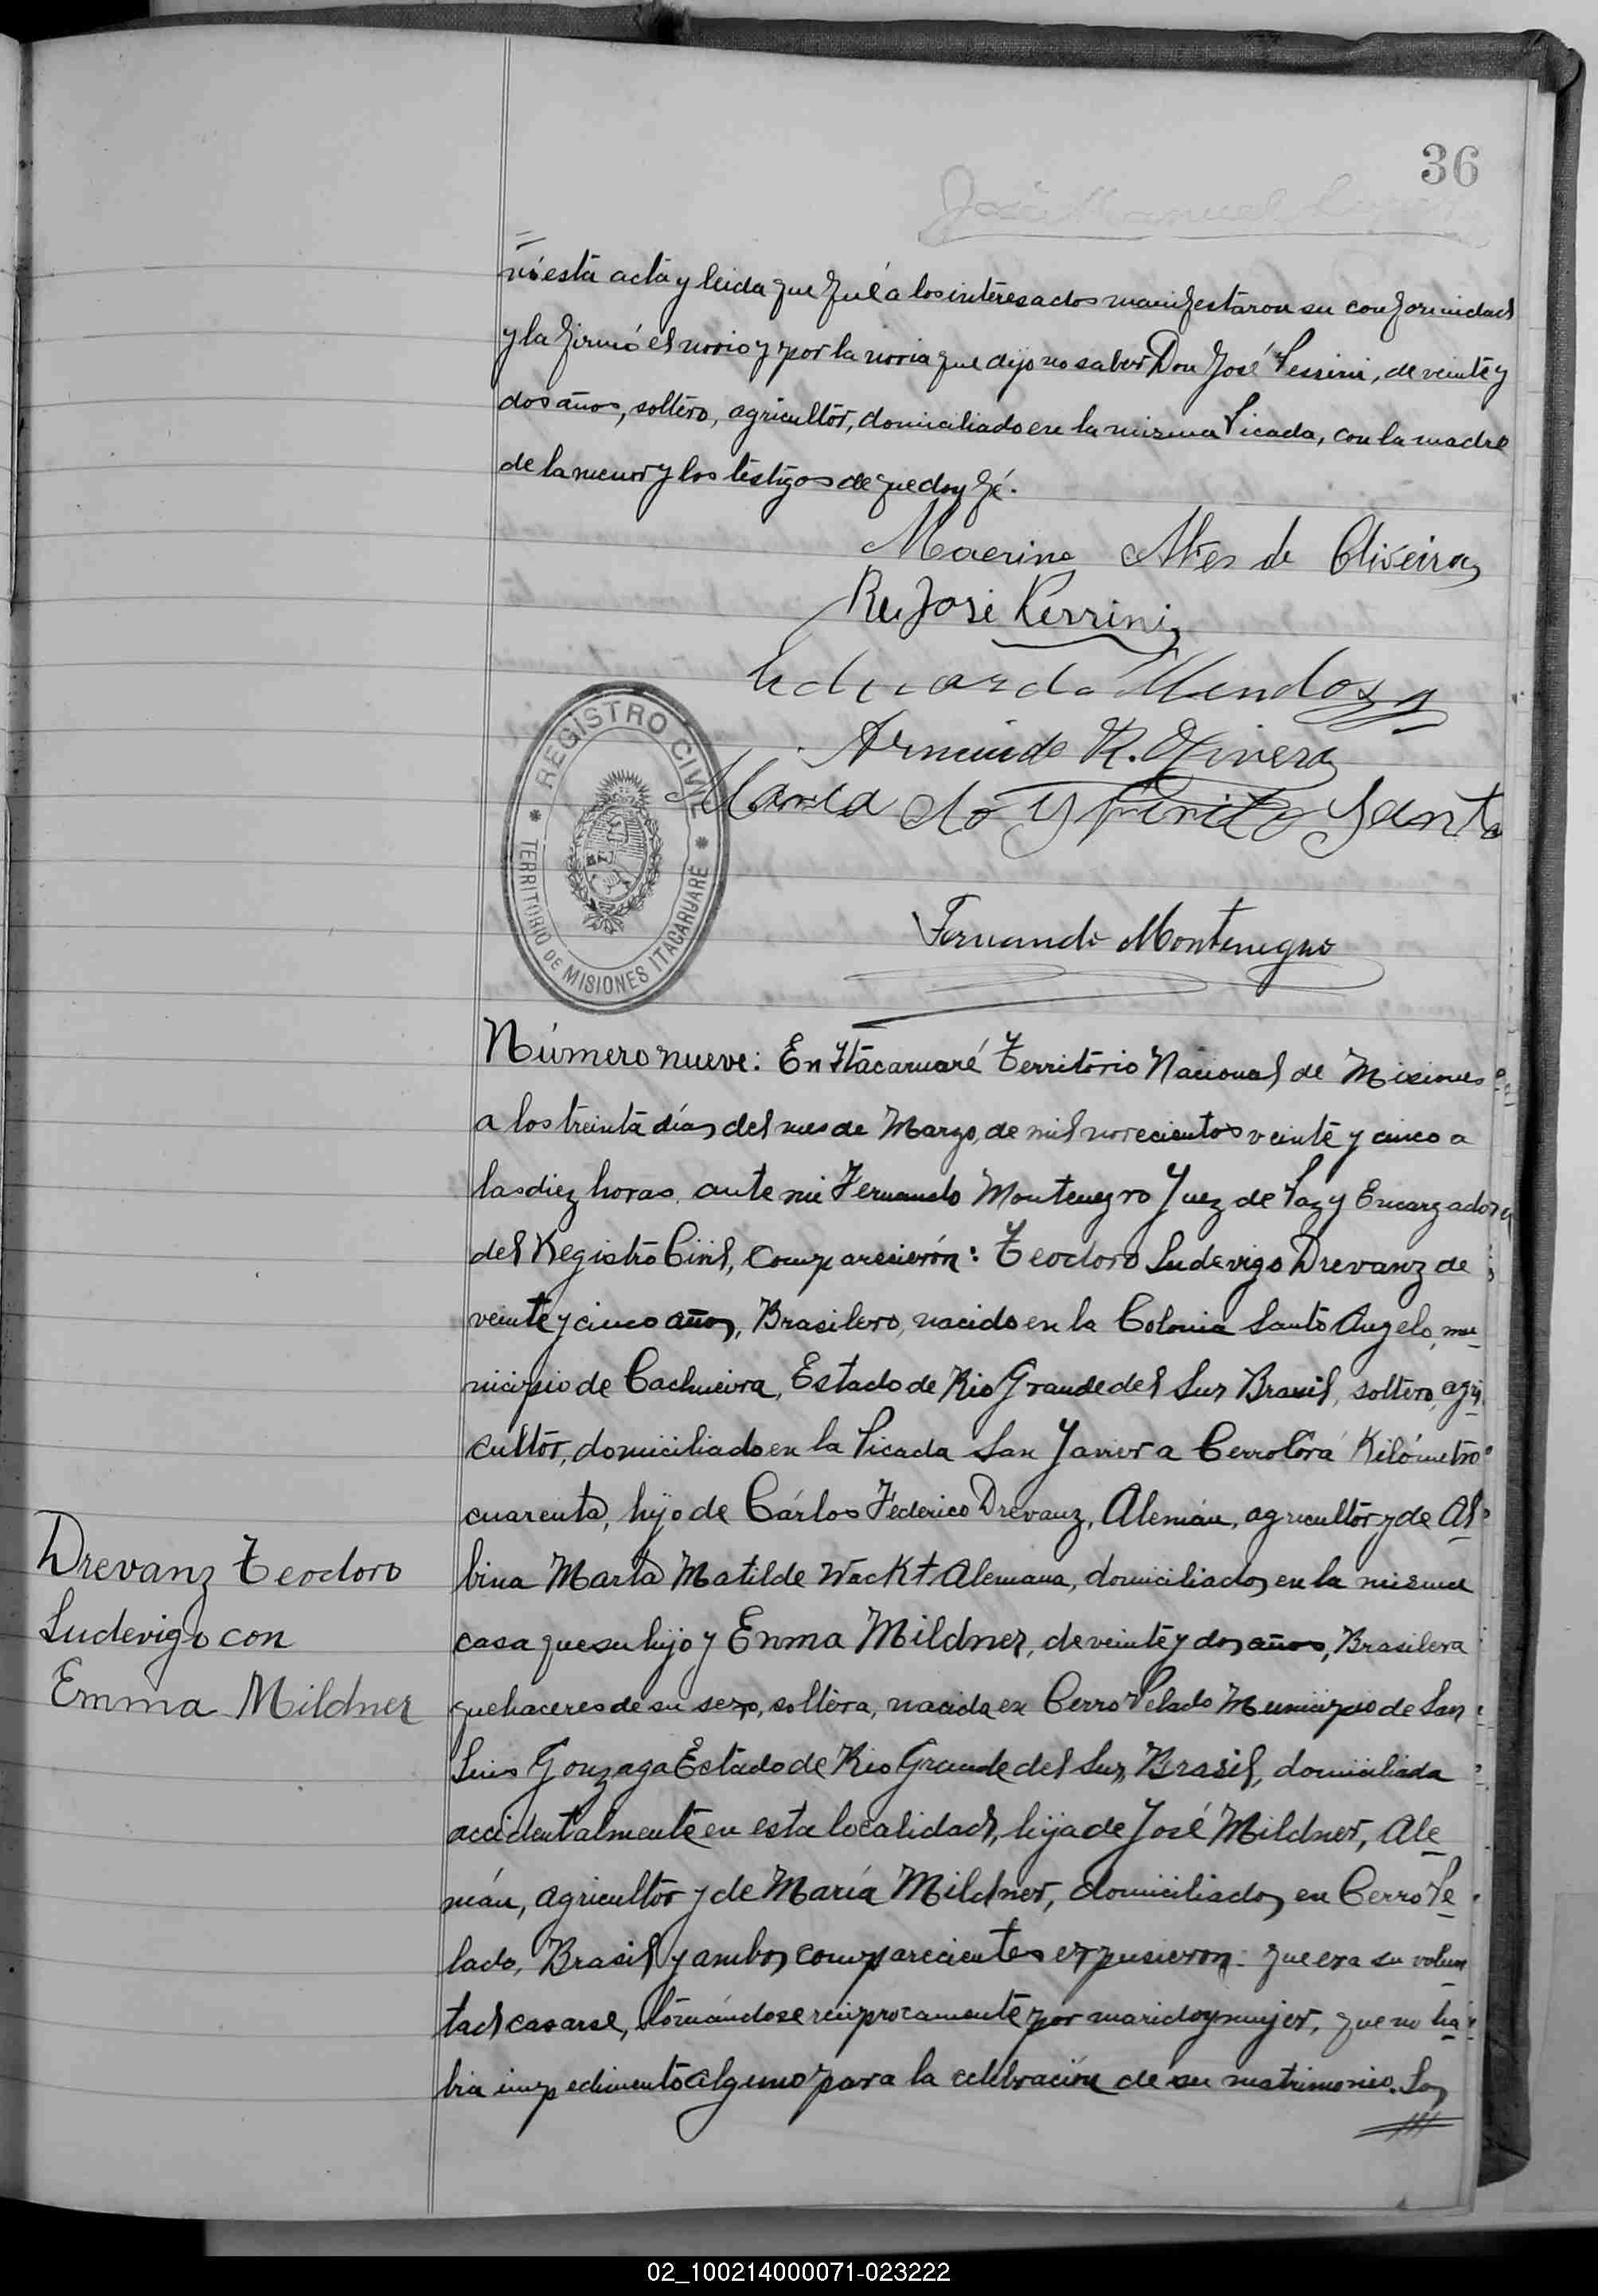 36
José Manuel
esta acta y leida que fué a los interesados manifestaron su conformidad
y la firmó el novio y por la novia que dijo no saber Don José Perrini, de veinte y
dos años, soltero, agricultor, domiciliado en la misma Picada, con la madre
de la menor y los testigos de que doy fé.
Alves de Oliveira
José Perrini
Eduardo Mendoza
Armindo R. Olivera
Maria do Espirito Santo
REGISTRO CIVIL
TERRITORIO DE MISIONES ITACARUARE
Fernando Montenegro
Número nueve: En Itácaruaré Territorio Nacional de Misiones
a los treinta días del mes de Marzo, de mil novecientos veinte y cinco a
las diez horas, ante mi Fernando Montenegro Juez de Paz y Encargado
del Registro Civil, comparecierón: Teodoro Ludevigo Drevanz de
veinte y cinco años, Brasilero, nacido en la Colonia Santo Angelo, mu
nicipio de Cachueira, Estado de Rio Grande del Sur Brasil, soltero, agri
cultor, domiciliado en la Picada San Javier a Cerro Corá Kilómetro
cuarenta, hijo de Cárlos Federico Drevanz, Alemán, agricultor y de Al
bina Marta Matilde Wackt Alemana, domiciliados en la misma
Drevanz Teodoro
Ludevigo con
Emma Mildner
casa que su hijo y Emma Mildner, de veinte y dos años, Brasilera
quehaceres de su sexo, soltera, nacida en Cerro Pelado Municipio de San
Luis Gonzaga Estado de Rio Grande del Sur, Brasil, domiciliada
accidentalmente en esta localidad, hija de José Mildner, Ale
mán, agricultor y de María Mildner, domiciliados en Cerro Pe
lado, Brasil y ambos comparecientes expusieron: que era su volun
tad casarse, tomándose reciprocamente por marido y mujer, que no ha
bia impedimento alguno para la celebración de su matrimonio. Los
02_100214000071-023222